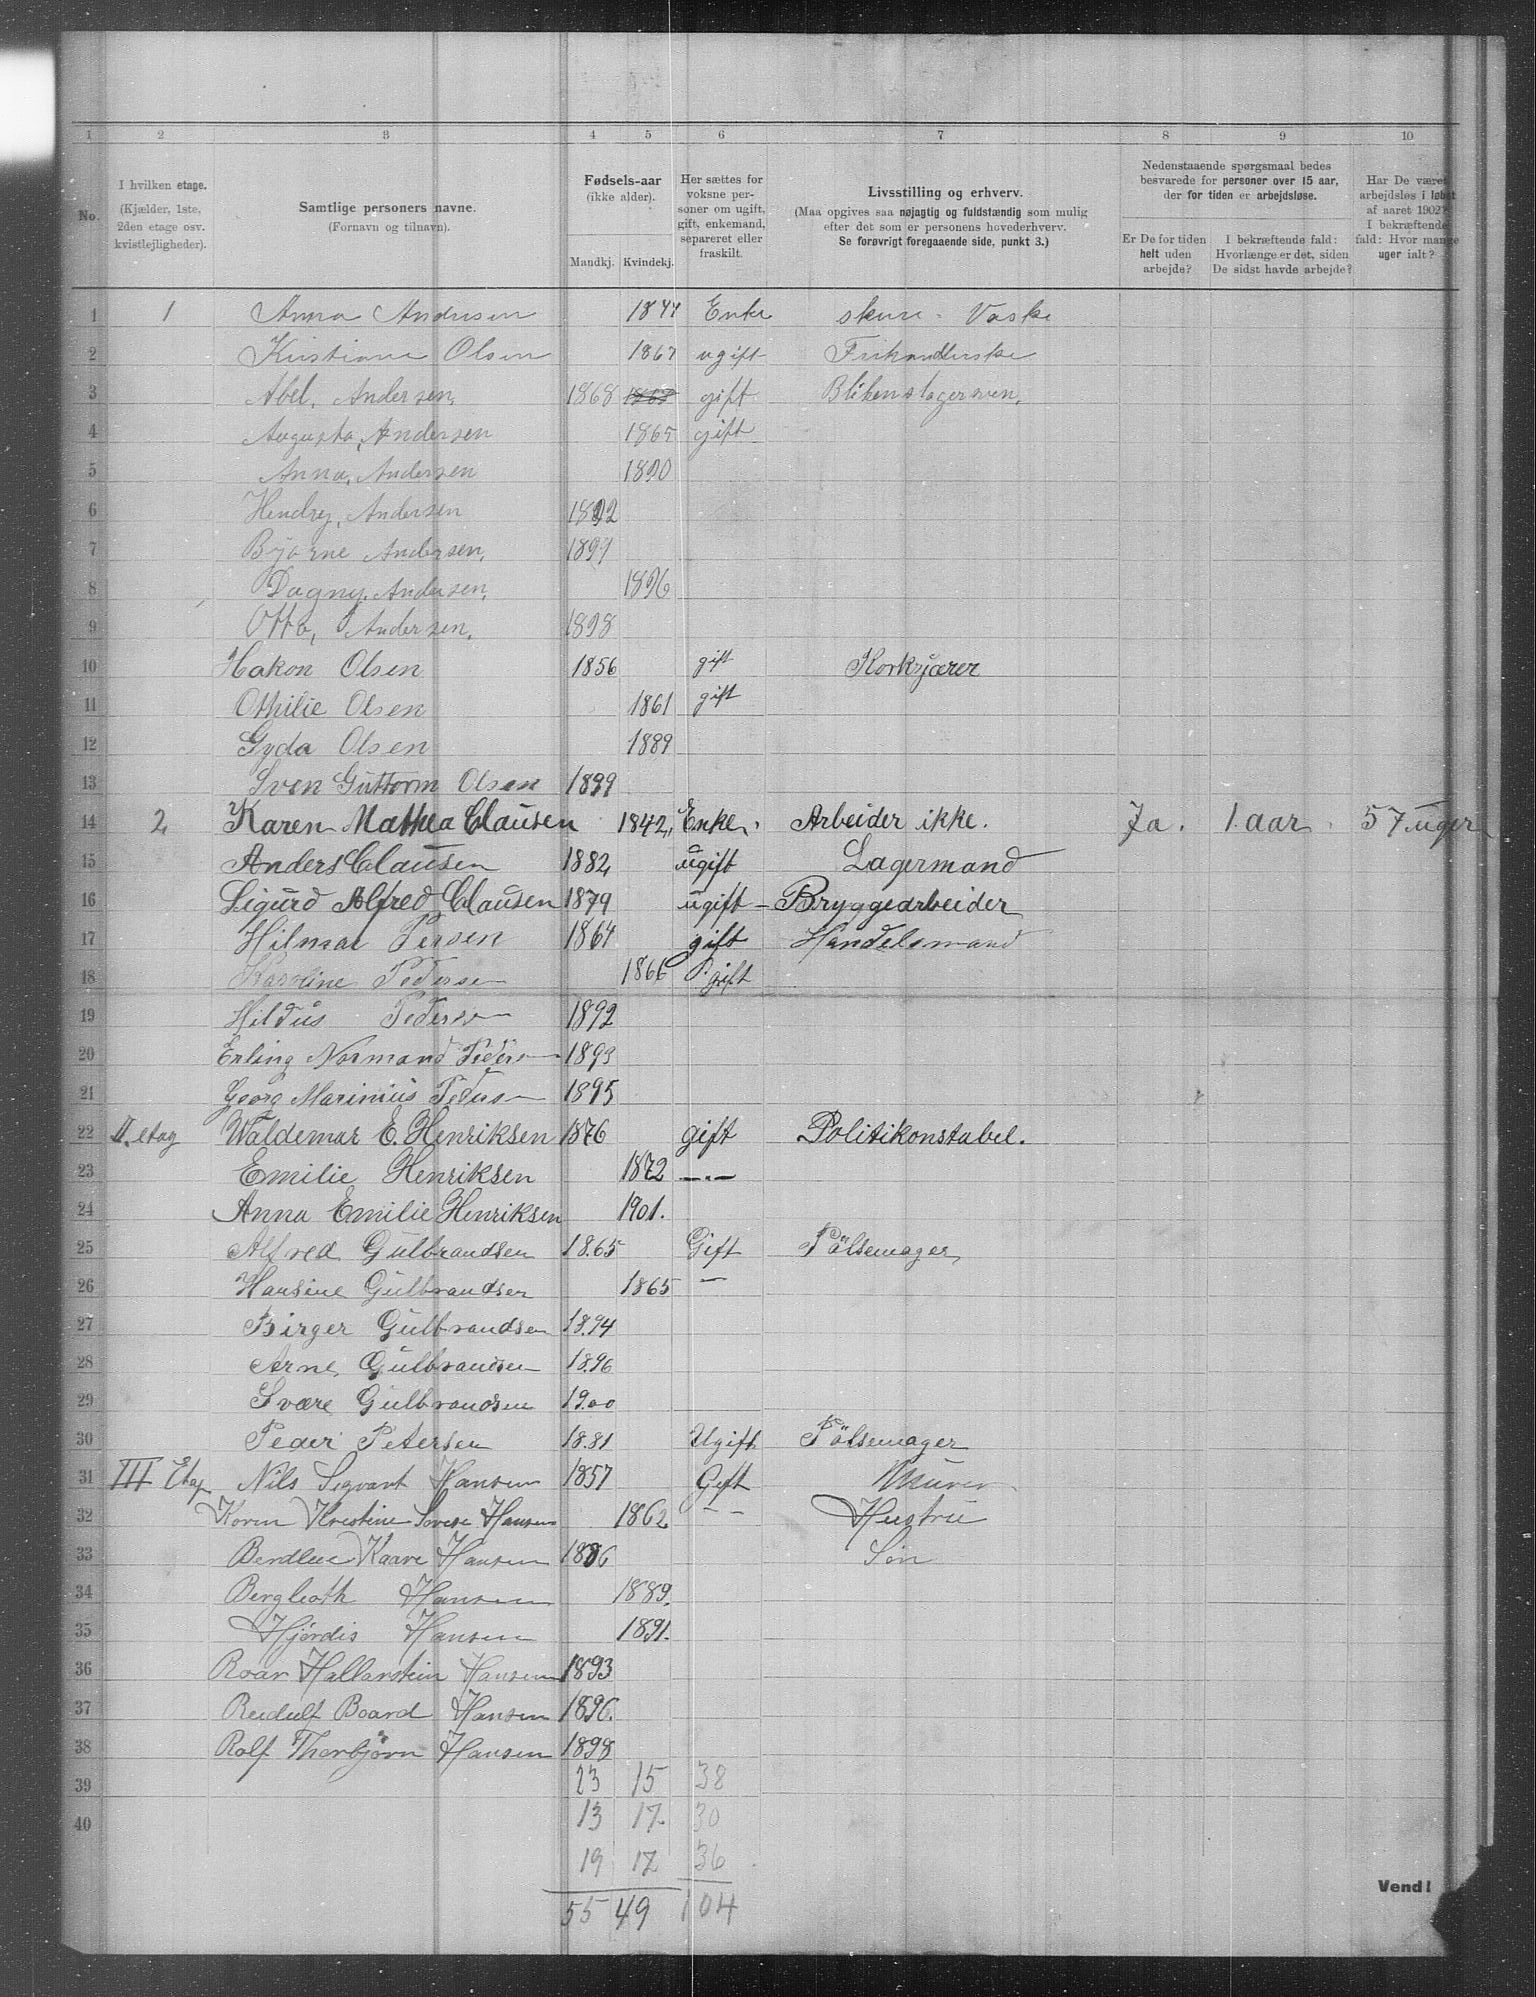 1 2 3 4 5 6 7 8 9 10
No.
I hvilken etage.
(Kjælder, 1ste, 2den etage osv. kvistlejligheder).
Samtlige personers navne.
(Fornavn og tilnavn).
Fødsels-aar
(ikke alder).
Mandkj. Kvindekj.
Her sættes for voksne personer om ugift, gift, enkemand, separeret eller fraskilt.
Livsstilling og erhverv.
(Maa opgives saa nøjagtig og fuldstændig som mulig
efter det som er personens hovederhverv.
Se forøvrigt foregaaende side, punkt 3.)
Nedenstaaende spørgsmaal bedes
besvarede for personer over 15 aar,
der for tiden er arbejdsløse.
Er De for tiden helt uden arbejde?
I bekræftende fald: Hvorlænge er det, siden De sidst havde arbejde?
Har De været arbejdsløs i løbet af aaret 1902? I bekræftende fald: Hvor mange uger ialt?
1 1 Anna Andersen 1844 Enke skure - Vaske
2 Kristiane Olsen 1867 ugift Frihandlerske
3 Abel, Andersen, 1868 1868 gift Blikenslagersven,
4 Augusta, Andersen 1865 gift
5 Anna, Andersen 1890
6 Hendry, Andersen 1892
7 Bjarne Andersen, 1899
8 Dagny, Andersen, 1896
9 Otto, Andersen, 1898
10 Hakon Olsen 1856 gift Korkskjærer
11 Othilie Olsen 1861 gift
12 Gyda Olsen 1889
13 Sven Guttorm Olsen 1899
14 2 Karen Mathea Clausen 1842, Enke. Arbeider ikke. Ja. 1. aar. 57 uger
15 Anders Clausen 1882 ugift Lagermand
16 Sigurd Alfred Clausen 1879 ugift – Bryggearbeider
17 Hilmar Persen 1864 gift Handelsmand
18 Karoline Pedersen 1866 gift
19 Hildus Pedersen 1892
20 Erling Normand Pedersen 1893
21 Georg Marinius Pedersen 1895
22 II. etag Waldemar E. Henriksen 1876 gift Politikonstabel.
23 Emilie Henriksen 1872 —"—
24 Anna Emilie Henriksen 1901.
25 Alfred Gulbrandsen 1865 Gift Pölsemager
26 Hansine Gulbrandsen 1865 —
27 Birger Gulbrandsen 1894
28 Arne Gulbrandsen 1896
29 Svære Gulbrandsen 1900
30 Peder Petersen 1881 Ugift Pölsemager
31 III Etag Nils Sigvart Hansen 1857 Gift Murer
32 Karen Kristine Hansen 1862 – – Hustru
33 Kaare Hansen 1886 Søn
34 Bergleoth Hansen 1889.
35 Hjørdis Hansen 1891.
36 Roar Hallarstein Hansen 1893
37 Reidulf Board Hansen 1896.
38 Rolf Thorbjørn Hansen 1898
39 23 15 38
40 13 17 30
19 17 36
55 49 104
Vend!